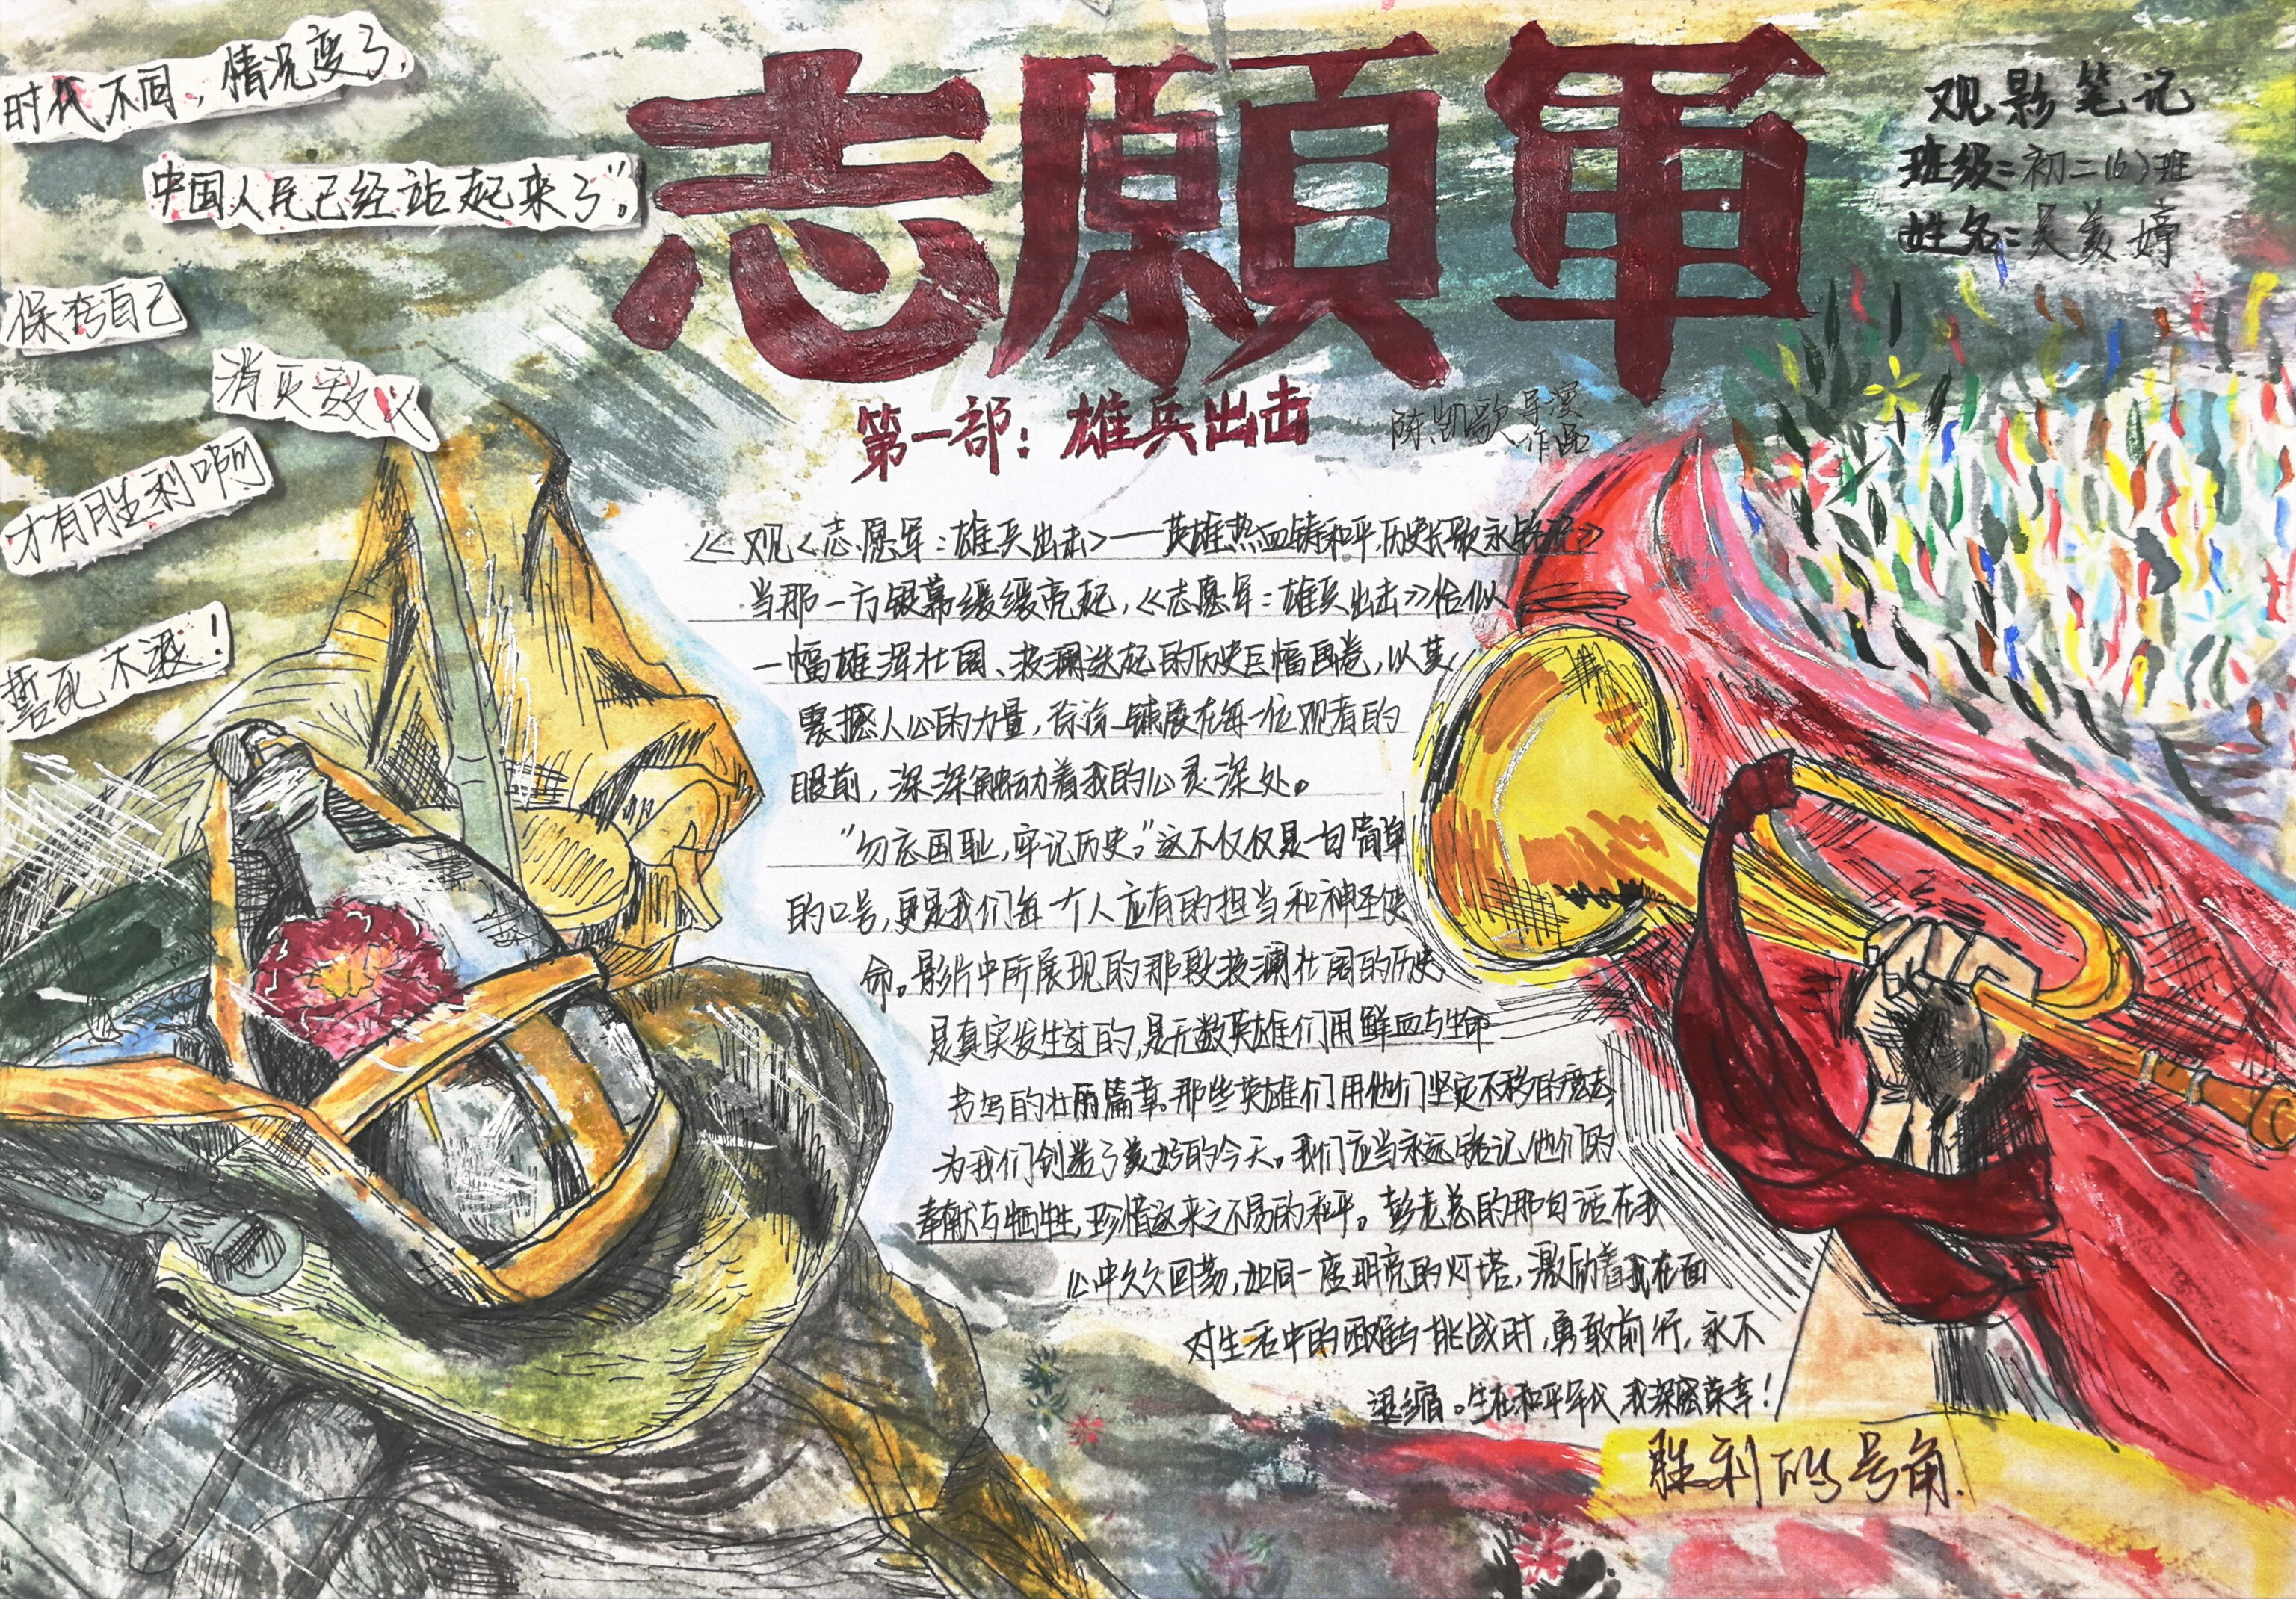 时代不同，情况变了，
中国人民已经站起来了”。
保存自己
消灭敌人
才有胜利啊
誓死不退！
志願軍
第一部：雄兵出击
陈凯歌导演
作品
观影笔记
班级：初二(6)班
姓名：吴美婷
《观<志愿军：雄兵出击>——英雄热血铸和平，历史长歌永铭记》
当那一方银幕缓缓亮起，《志愿军：雄兵出击》恰似
一幅雄浑壮阔、波澜迭起的历史巨幅画卷，以其
震撼人心的力量，徐徐铺展在每一位观看的
眼前，深深触动着我的心灵深处。
“勿忘国耻，牢记历史，”这不仅仅是一句简单
的口号，更是我们每一个人应有的担当和神圣使
命。影片中所展现的那段波澜壮阔的历史
是真实发生过的，是无数英雄们用鲜血与生命
书写的壮丽篇章。那些英雄们用他们坚定不移的意志
为我们创造了美好的今天。我们应当永远铭记他们的
奉献与牺牲，珍惜这来之不易的和平。彭老总的那句话在我
心中久久回荡，如同一座明亮的灯塔，激励着我在面
对生活中的困难与挑战时，勇敢前行，永不
退缩。生在和平年代我深感荣幸！
胜利的号角.